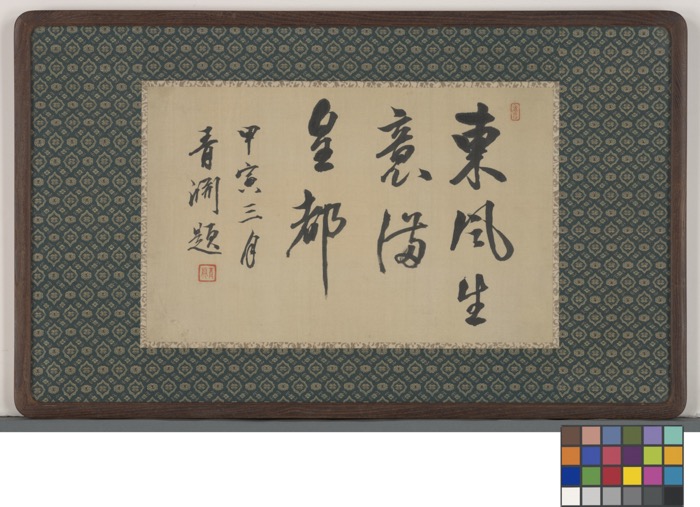 東風生
意満
皇都
甲寅三月
青淵題